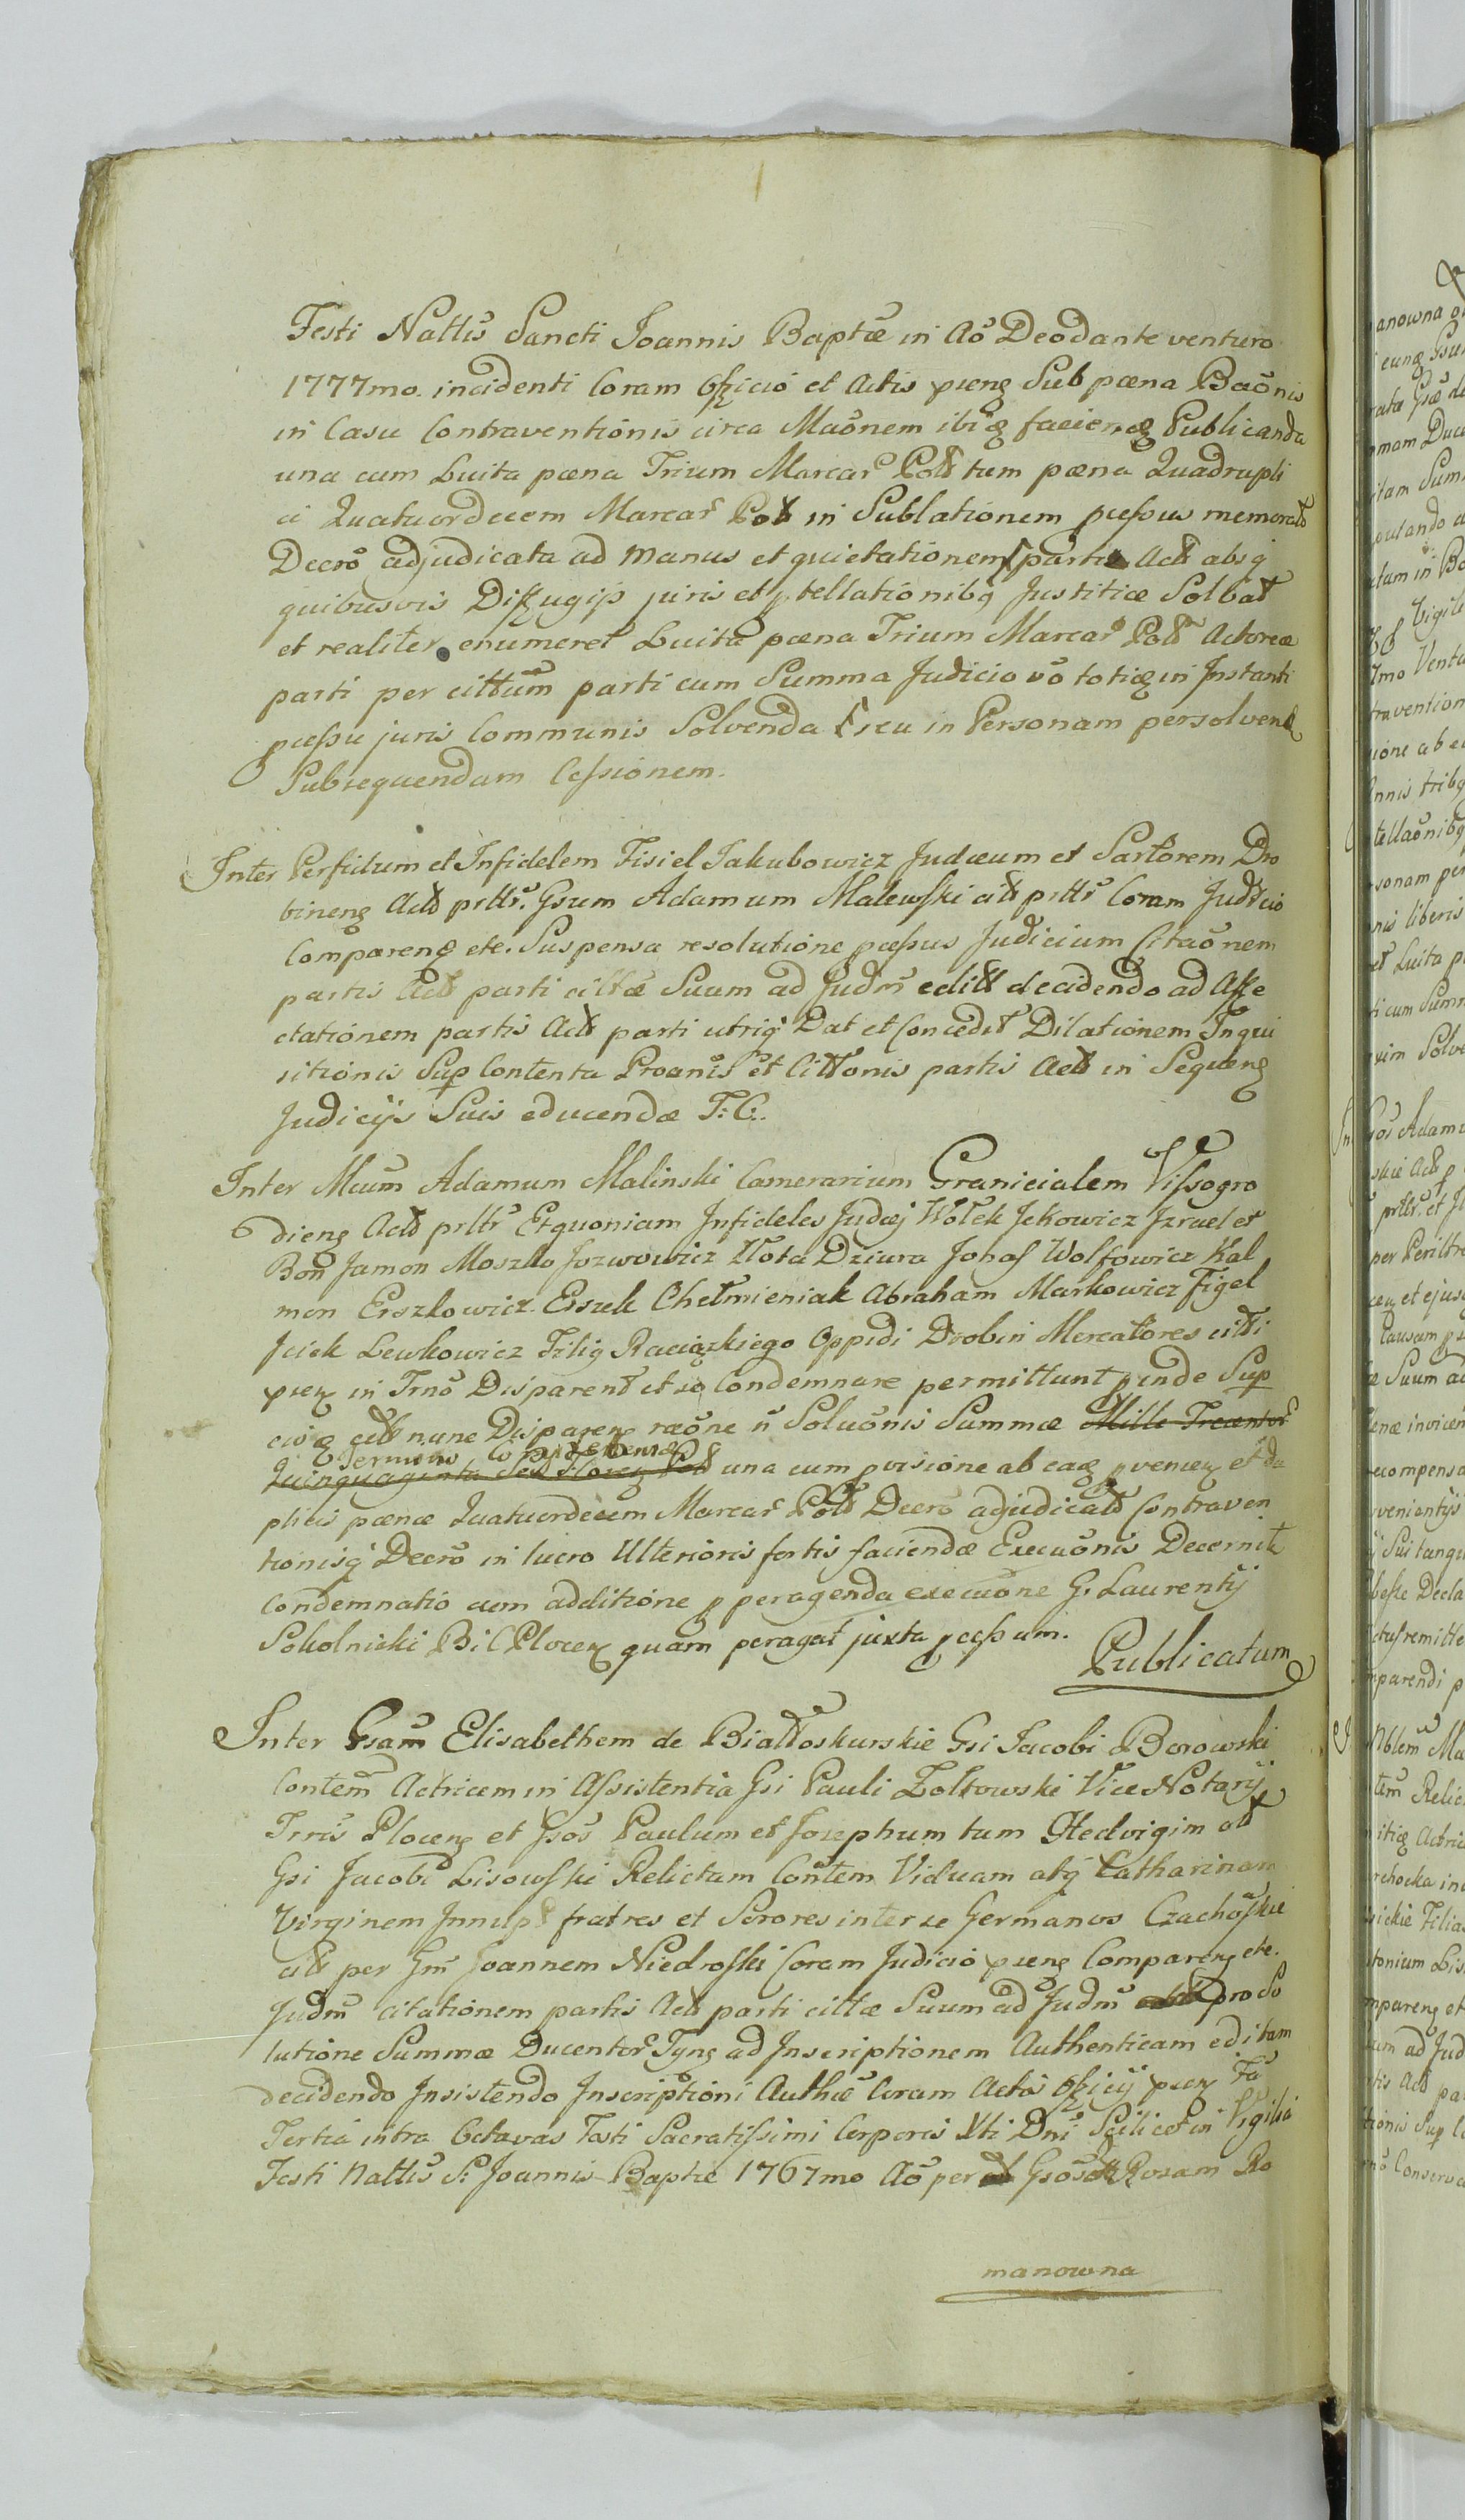 Festi Nattis Sancti Joannis Baptæ in Aō Deodante venturo
1777mo. incidenti Coram Officio et Actis præng Sub pœna Baōnis
in Casu Contraventionis circa Maōnem ibiq faciend Publicanda
una cum Luita pœna Trium Marcar Poll tum pœna Quadrupli
ci Quatuordecem Marcar Poll in Sublationem pcessus memorato
Decro adjudicata ad manus et quietationem partis Actt absq
quibusvis Diffugijs juris et ptellationibq Justitiæ Solvat
et realiter enumeret Luita pœna Trium Marcar Poll Actoreæ
parti per cittum parti cum Summa Judicio vō totiq in Instanti
pcessu juris Communis Solvenda seu in Personam persolvend
Subsequendam Cessionem.
Inter Perfidum et Infidelem Fisiel Jakubowicz Judæum et Sartorem Dro
bineng Actt prtts. Gsum Adamum Malewski citt prtts Coram Judicio
Compareng etc. Suspensa resolutione pcessus Judicium Citaōnem
partis Actt parti cittæ Suum ad Judm editt decidendo ad Affe
ctationem partis Actt parti utriq Dat et Concedit Dilationem Inqui
sitionis Sup Contenta Proanis et Cittonis partis Actt in Sequeng
Judicijs Suis educendæ T: C:.
Inter Mcum Adamum Malinski Camerarium Granicialem Vissogro
dieng Actt prtts Etquoniam Infideles Judæj Wołek Jekowicz Izrael et
Jamon Moszko Jozwowicz Nota Dziura Jonas Wolfowicz Kal
mon Erszkowicz Erszek Chełmieniak Abraham Markowicz Figel
Jciek Lewkowicz Filig Raciązkiego Oppidi Drobin Mercatores citti
præng in Trno Disparent et se Condemnare permittunt pinde Sup
citt nunc Dispareng raōne ñ Soluōnis Summæ Mille Trecentor
Quinquaginta Sex Floreng Poll una cum pvisione ab eaq pvenieng et du
plicis pœnæ Quatuordecem Marcar Poll Decro adjudicatt Contraven
tionisq Decro in lucro Ulterioris fortis faciendæ Execuōnis Decernit
Condemnatio cum additione p peragenda execuōne G. Laurentij
Sokolnicki Plocen quam peragat juxta pcessum.
Publicatum
Inter Gsam Elisabethem de Białłoskurskie Gsi Jacobi Borowski
Contem Actricem in Assistentia Gsi Pauli Zołtowski Vice Notarij
Trris Ploceng et Gsos Paulum et Josephum tum Hedvigim
Gsi Jacobi Lisowski Relictam Contem Viduam atq Catharinam
Virginem Innup fratres et Sorores inter se Germanos Czachoskie
citt per Gm Joannem Niedroski Coram Judicio præng Compareng etc.
Judm citationem partis Actt parti cittæ Suum ad Judm pro So
lutione Summæ Ducentor Tyng ad Inscriptionem Authenticam editam
decidendo Insistendo Inscriptioni Authæ Coram Actis Officij præng Fa
Tertia intra Octavas Festi Sacratissimi Corporis Xti Dni Scilicet in Vigilia
Festi Nattis S. Joannis Baptæ 1767mo Aō per Gsos Rozam Ro
manowna